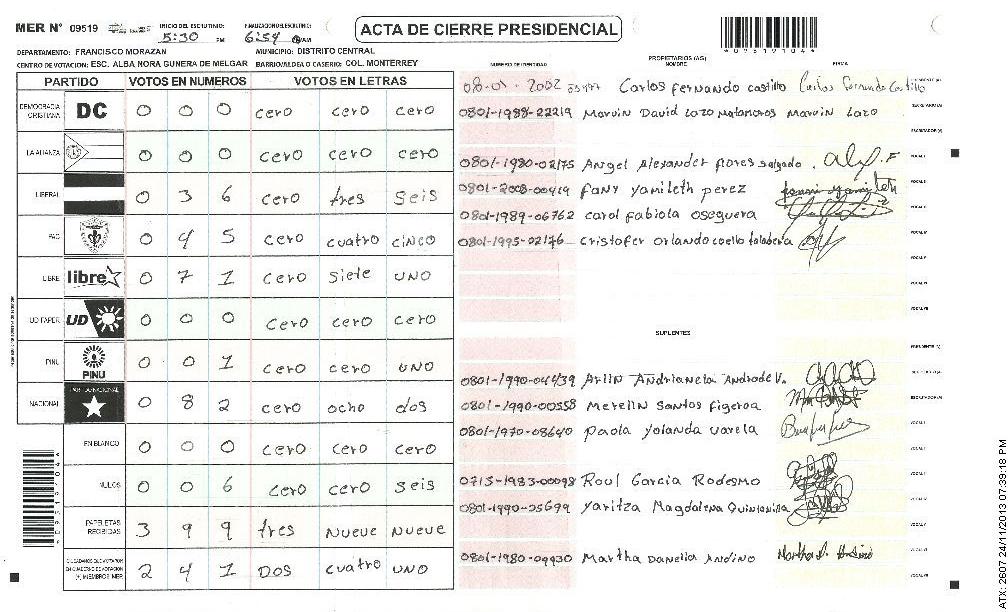 MER N° 09519 INICIO DEL ESCRUTINIO: 5:30 PM FINALIZACION DEL ESCRUTINIO: 6:54 AM
ACTA DE CIERRE PRESIDENCIAL
DEPARTAMENTO: FRANCISCO MORAZAN MUNICIPIO: DISTRITO CENTRAL
CENTRO DE VOTACION: ESC. ALBA NORA GUNERA DE MELGAR BARRIO/ALDEA O CASERIO: COL. MONTERREY
PARTIDO VOTOS EN NUMEROS VOTOS EN LETRAS
DEMOCRACIA CRISTIANA DC 0 0 0 cero cero cero
LA ALIANZA 0 0 0 cero cero cero
LIBERAL 0 3 6 cero tres seis
PAC 0 4 5 cero cuatro cinco
LIBRE libre 0 7 1 cero siete uno
UD FAPER UD 0 0 0 cero cero cero
PINU PINU 0 0 1 cero cero uno
NACIONAL PARTIDO NACIONAL 0 8 2 cero ocho dos
EN BLANCO 0 0 0 cero cero cero
NULOS 0 0 6 cero cero seis
PAPELETAS RECIBIDAS 3 9 9 tres nueve nueve
CIUDADANOS QUE VOTARON EN CUADERNO DE VOTACION (+) MIEMBROS MER 2 4 1 dos cuatro uno
NUMERO DE IDENTIDAD PROPIETARIOS (AS) NOMBRE FIRMA
Carlos fernando castillo Carlos Fernando Castillo
0801-1988-22219 Marvin David Lazo Matamoros Marvin Lazo
0801-1980-02175 Angel Alexander flores salgado
0801-2008-00919 fany yamileth perez
0801-1989-06762 carol fabiola oseguera
0801-1995-02176 cristofer orlando coello
SUPLENTES
Arlin Andrade V.
0801-1990-00558 Merelin Santos figeroa
0801-1970-08640 paola yolanda varela
0715-1983-00098 Raul Garcia Rodesmo
0801-1990-05699 yaritza Magdalena Quintanilla
0801-1980-09930 Martha Danelia Andino
9519104
ATX: 2607 24/11/2013 07:39:18 PM